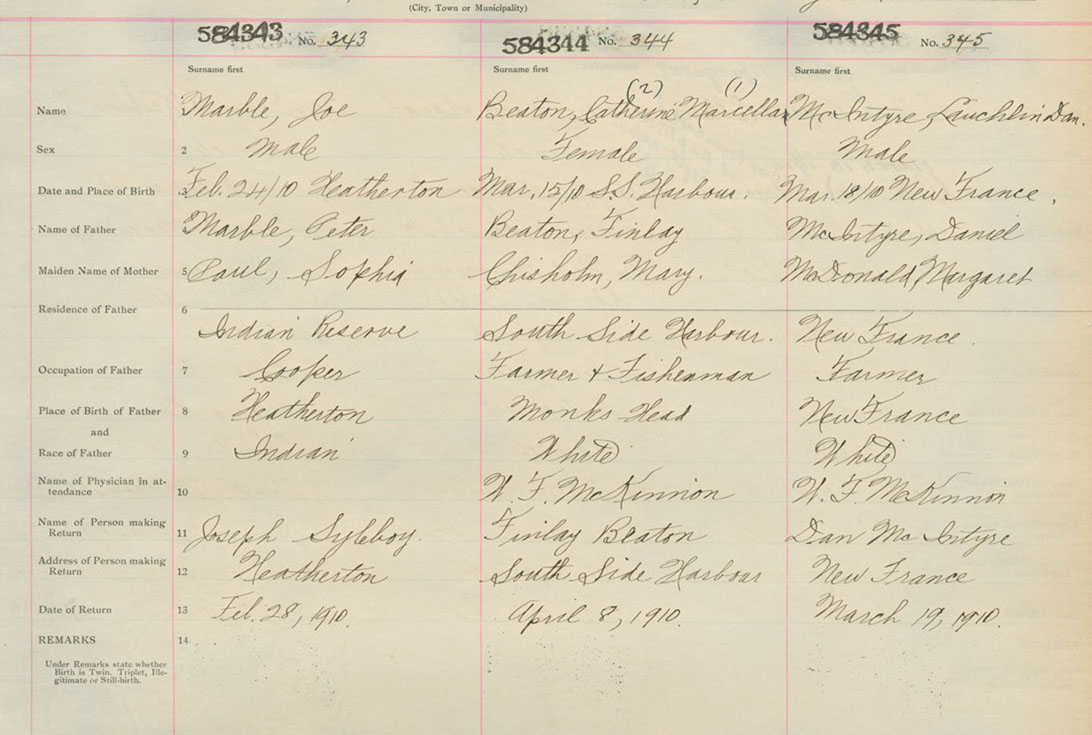 (City, Town or Municipality)
584343 No. 343 584344 No. 344 584345 No. 345
Surname first Surname first Surname first
(2) (1)
Name Marble, Joe Beaton, Catherine Marcella McIntyre, Lauchlin Dan.
Sex 2 Male Female Male
Date and Place of Birth 3 Feb. 24/10 Heatherton Mar. 15/10 S.S. Harbour. Mar. 18/10 New France.
Name of Father 4 Marble, Peter Beaton, Finlay McIntyre, Daniel
Maiden Name of Mother 5 Paul, Sophia Chisholm, Mary. McDonald, Margaret
Residence of Father 6
Indian Reserve South Side Harbour. New France.
Occupation of Father 7 Cooper Farmer & Fisherman Farmer.
Place of Birth of Father 8 Heatherton Monks Head New France
and
Race of Father 9 Indian White White
Name of Physician in at-
tendance 10 W. F. McKinnon W. F. McKinnon
Name of Person making
Return 11 Joseph Sylliboy. Finlay Beaton Dan McIntyre
Address of Person making
Return 12 Heatherton South Side Harbour New France
Date of Return 13 Feb. 28, 1910. April 8, 1910. March 19, 1910.
REMARKS 14
Under Remarks state whether
Birth is Twin, Triplet, Ille-
gitimate or Still-birth.